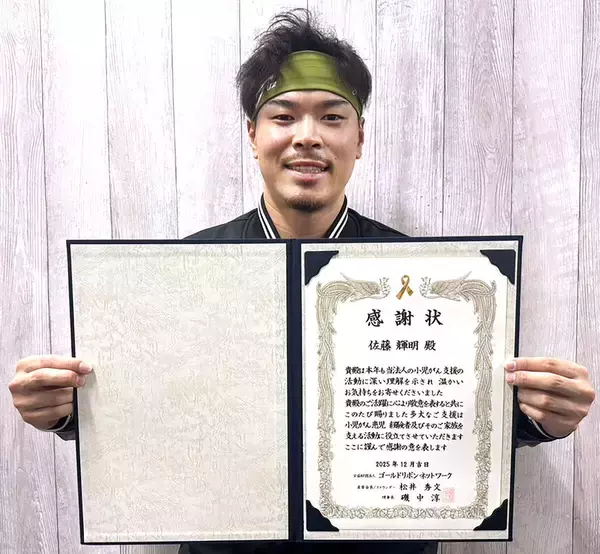 感謝状
佐藤 輝明 殿
貴殿は本年も当法人の小児がん支援の
活動に深い理解を示され 温かい
お気持ちをお寄せくださいました
貴殿のご活躍に心より敬意を表すると共に
このたび賜りました多大なご支援は
小児がん患児 経験者及びそのご家族を
支える活動に役立てさせていただきます
ここに謹んで感謝の意を表します
2025年12月吉日
公益財団法人 ゴールドリボン・ネットワーク
松井 秀文
理事長 磯中 淳